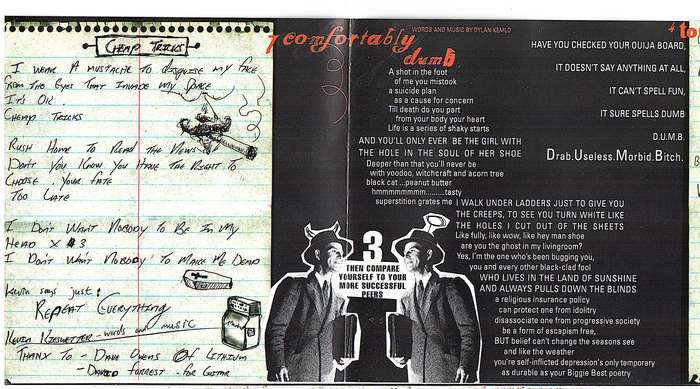 CHEAP TRICKS
I WEAR A MUSTACHE TO DISGUISE MY FACE
FROM THE EYES THAT INVADE MY SPACE
IT'S OK.
CHEAP TRICKS
RUSH HOME TO READ THE NEWS
DON'T YOU KNOW YOU HAVE THE RIGHT TO
CHOOSE YOUR FATE
TOO LATE
I DON'T WANT NOBODY TO BE IN MY
HEAD X 3
I DON'T WANT NOBODY TO MAKE ME DEAD
Kevin says just:
REPEAT EVERYTHING
KEVIN - words and music
THANX TO - DAVE OWENS OF LITHIUM
- DAVID FORREST - FOR GUITAR
7 comfortably
dumb
WORDS AND MUSIC BY DYLAN KEMLO
A shot in the foot
of me you mistook
a suicide plan
as a cause for concern
Till death do you part
from your body your heart
Life is a series of shaky starts
AND YOU'LL ONLY EVER BE THE GIRL WITH
THE HOLE IN THE SOUL OF HER SHOE
Deeper than that you'll never be
with voodoo, witchcraft and acorn tree
black cat ...peanut butter
hmmmmmmmm.........tasty
superstition grates me
I WALK UNDER LADDERS JUST TO GIVE YOU
THE CREEPS, TO SEE YOU TURN WHITE LIKE
THE HOLES I CUT OUT OF THE SHEETS
Like fully, like wow, like hey man shoe
are you the ghost in my livingroom?
Yes, I'm the one who's been bugging you,
you and every other black-clad fool
WHO LIVES IN THE LAND OF SUNSHINE
AND ALWAYS PULLS DOWN THE BLINDS
a religious insurance policy
can protect one from idolitry
disassociate one from progressive society
be a form of escapism free,
BUT belief can't change the seasons see
and like the weather
you're self-inflicted depression's only temporary
as durable as your Biggie Best poetry
3
THEN COMPARE
YOURSELF TO YOUR
MORE SUCCESSFUL
PEERS
HAVE YOU CHECKED YOUR OUIJA BOARD,
IT DOESN'T SAY ANYTHING AT ALL,
IT CAN'T SPELL FUN,
IT SURE SPELLS DUMB
D.U.M.B.
Drab.Useless.Morbid.Bitch.
to